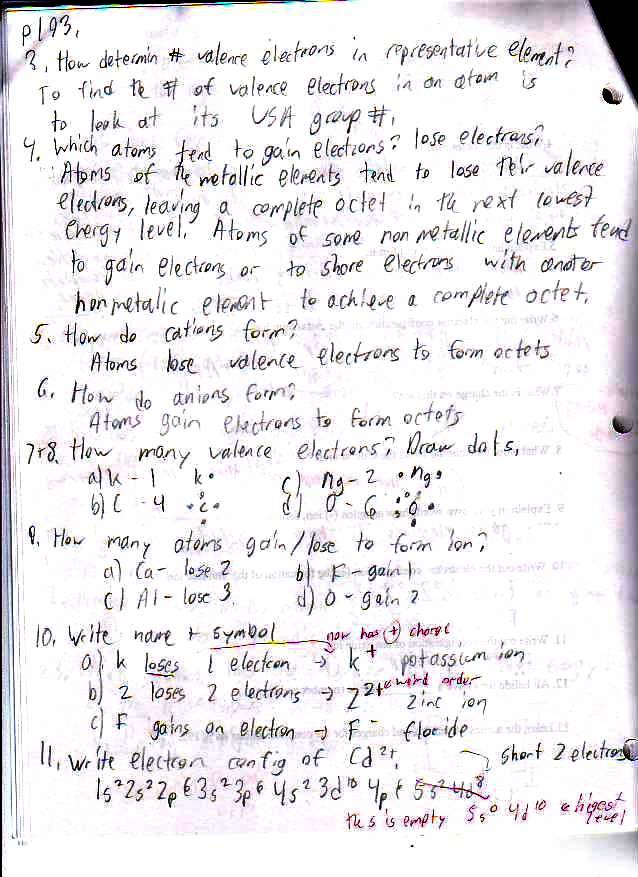 p193.
3. How determin # valence electrons in representative element?
To find the # of valence electrons in an atom is
to look at its USA group #.
4. Which atoms tend to gain electrons? lose electrons?
Atoms of the metallic elements tend to lose their valence
electrons, leaving a complete octet in the next lowest
energy level. Atoms of some non metallic elements tend
to gain electrons or to share electrons with another
nonmetalic element to achieve a complete octet.
5. How do cations form?
Atoms lose valence electrons to form octets
6. How do anions form?
Atoms gain electrons to form octets
7+8. How many valence electrons? Draw dots.
a) k - 1 k• c) Mg - 2 •Mg•
b) C - 4 •C• d) O - 6 :O•
9. How many atoms gain/lose to form ion?
a) Ca - lose 2 b) F - gain 1
c) Al - lose 3 d) O - gain 2
10. Write name + symbol now has (+) charge
a) k loses 1 electron → k+ potassium ion
b) 2 loses 2 electrons → Z 2+ weird order zinc ion
c) F gains an electron → F- floride
11. Write electron config of Cd 2+. short 2 electrons
1s2 2s2 2p6 3s2 3p6 4s2 3d10 4p6 5s2 4d8
this is empty 5s0 4d10 highest level